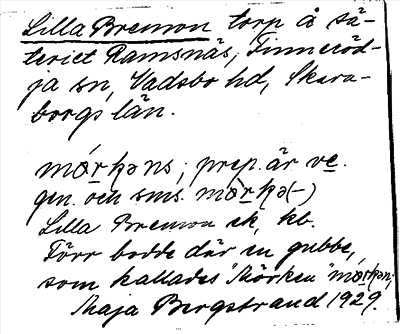 Lilla Bremon torp å sä-
teriet Ramsnäs, Finneröd-
ja sn, Vadsbo hd, Skara-
borgs län.
mǫ́rkəns; prep. är ve.
gen. och sms. mǫ̀rkə(-)
Lilla Bremon ek, kb.
Förr bodde där en gubbe,
som kallades "Mörken" mǫrkən;
Maja Bergstrand 1929.